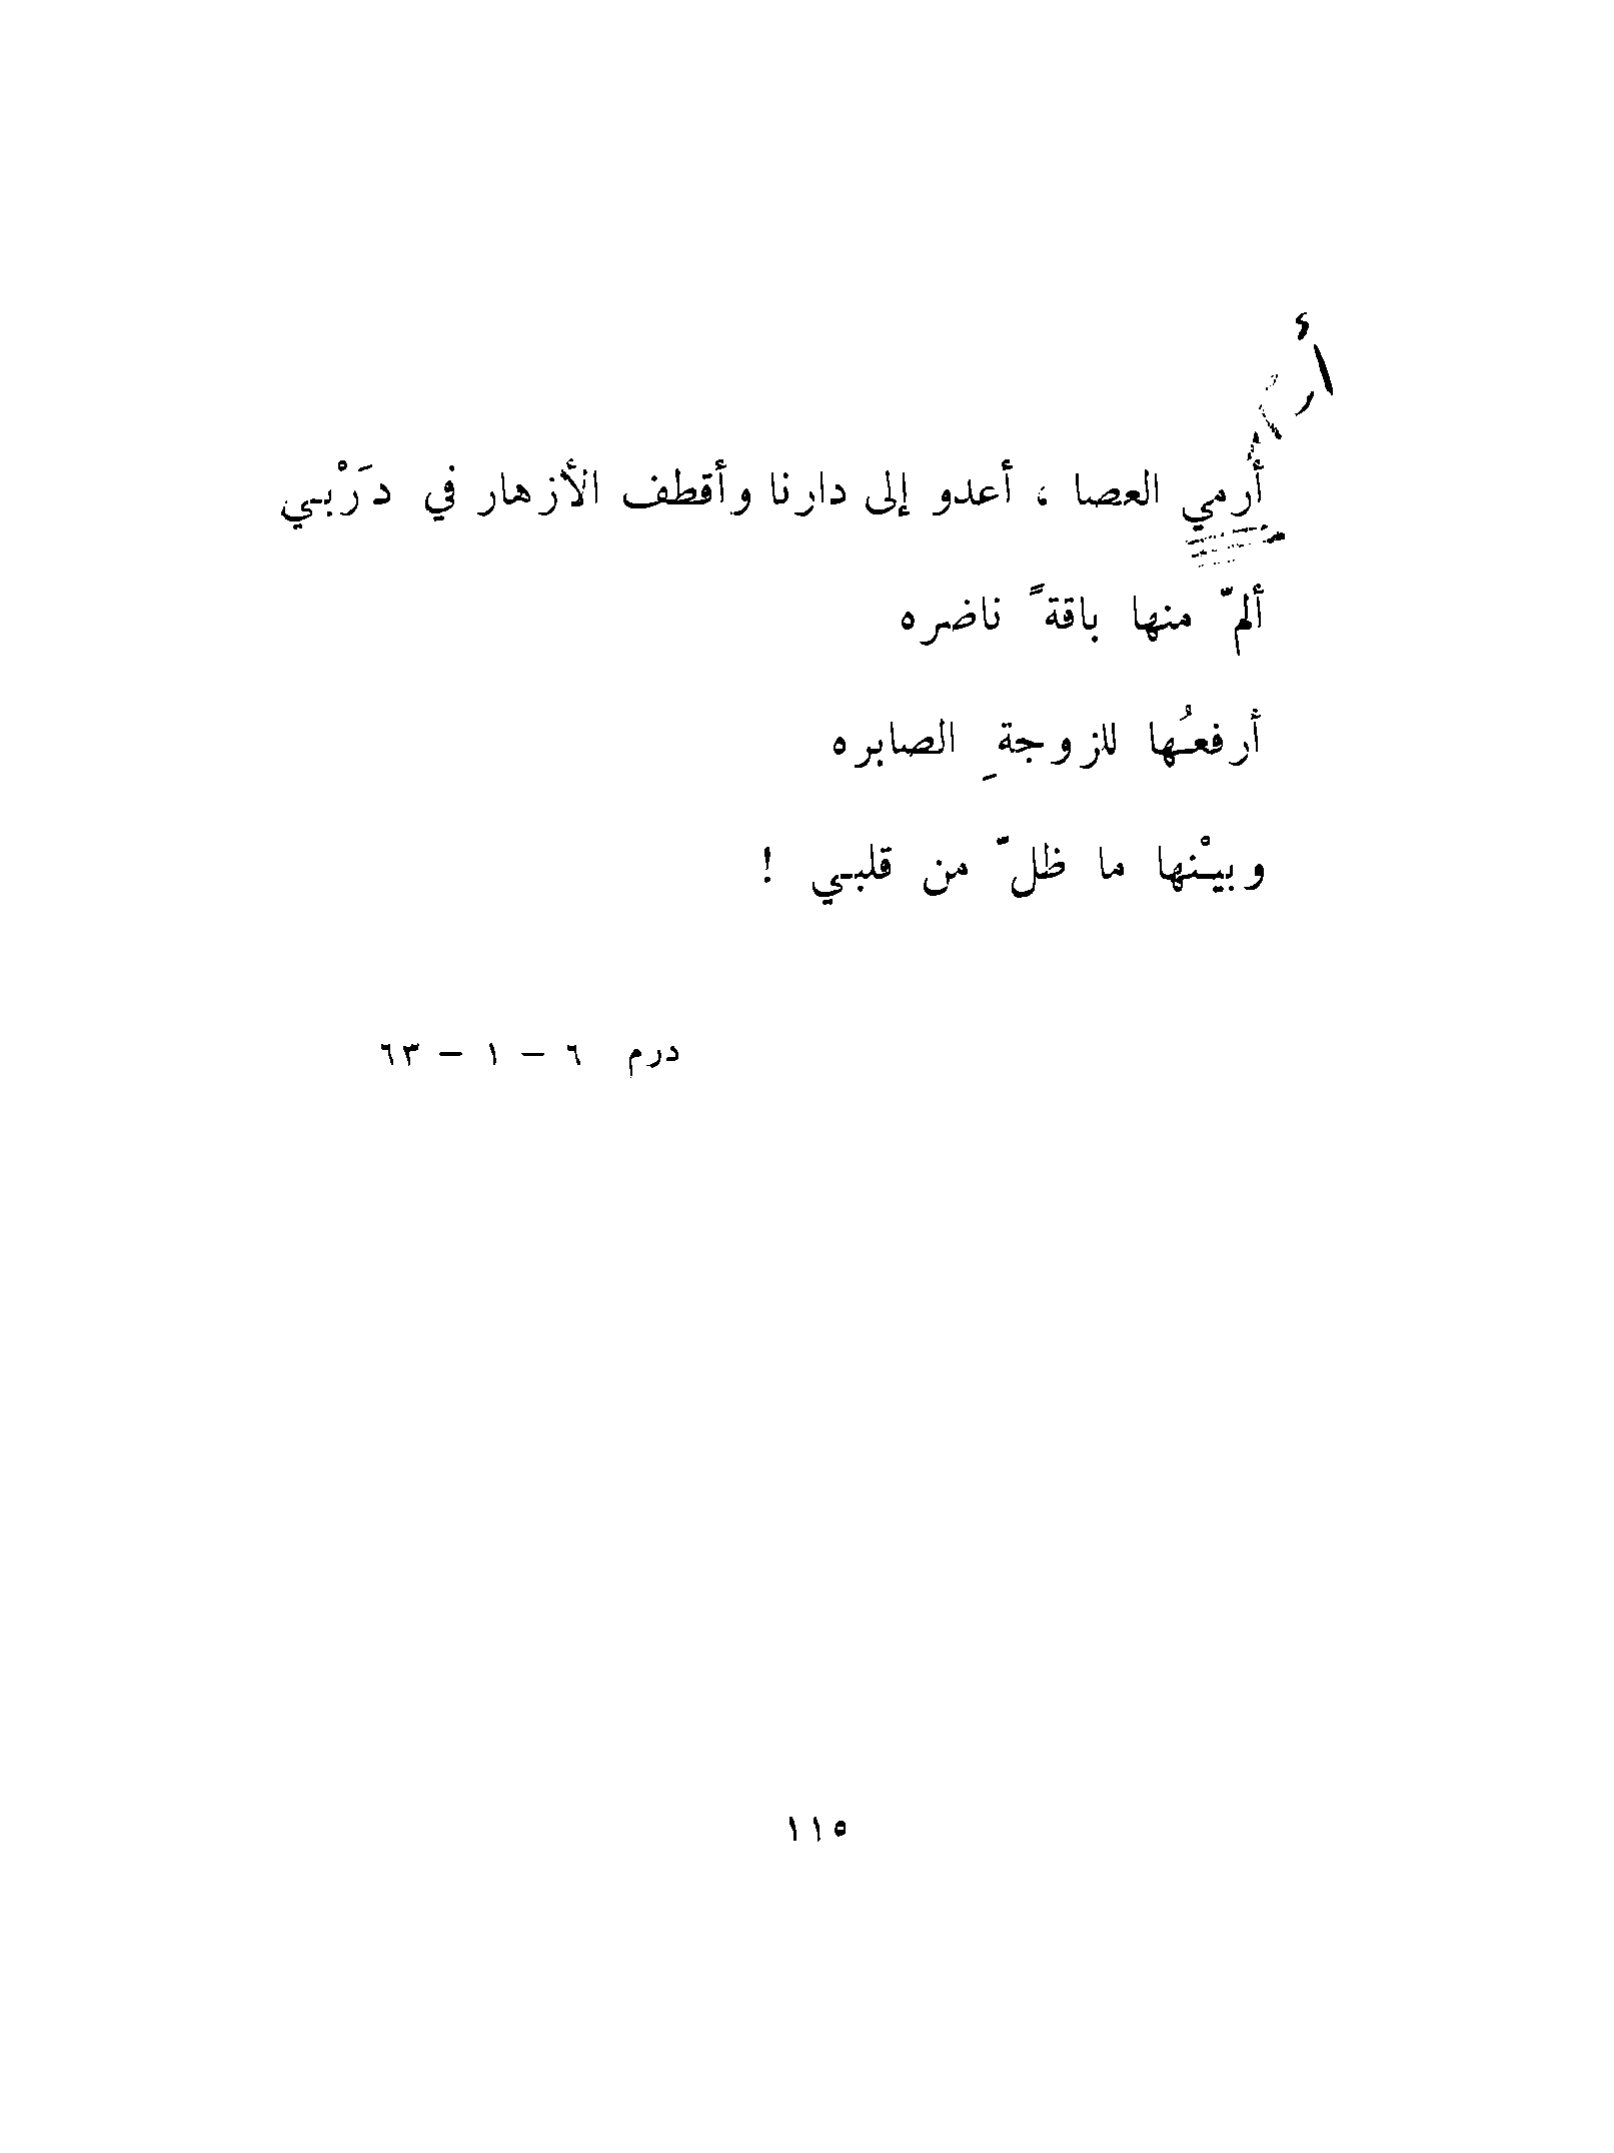 أرمي العصا ، أعدو إلى دارنا وأقطف الأزهار في دَرْبي
ألمّ منها باقةً ناضره
أرفعُها للزوجةِ الصابره
وبيْنها ما ظلّ من قلبي !
درم ٦ - ١ - ٦٣
١١٥